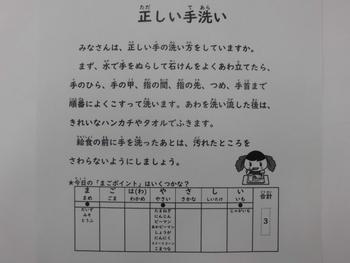 正しい手洗い
みなさんは、正しい手の洗い方をしていますか。
まず、水で手をぬらして石けんをよくあわ立てたら、
手のひら、手の甲、指の間、指の先、つめ、手首まで
順番によくこすって洗います。あわを洗い流した後は、
きれいなハンカチやタオルでふきます。
給食の前に手を洗ったあとは、汚れたところを
さわらないようにしましょう。
★今日の「まごポイント」はいくつかな?
ま ご は(わ) や さ し い 合計
まめ ごま わかめ やさい さかな しいたけ いも
● ● ● 3
だいず たまねぎ じゃがいも
みそ にんじん
とうふ ピーマン
しょうが
にんにく
こまつな